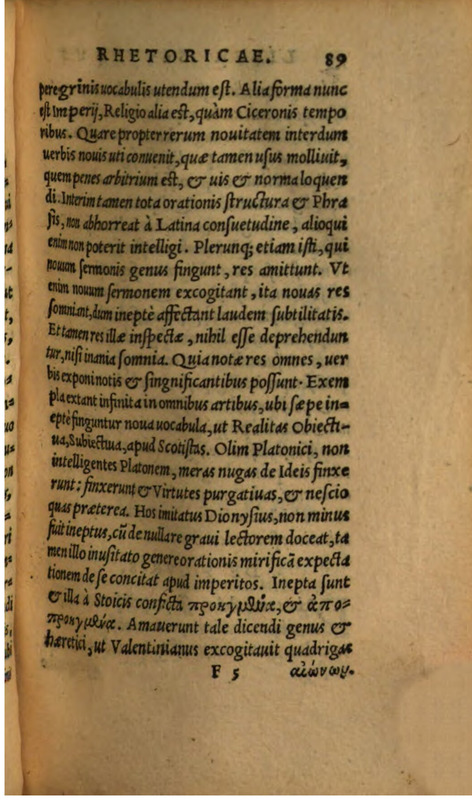 RHETORICAE. 89
peregrinis uocabulis utendum est. Alia forma nunc
est Imperij, Religio alia est, quàm Ciceronis tempo
ribus. Quare propter rerum nouitatem interdum
uerbis nouis uti conuenit, quæ tamen usus molliuit,
quem penes arbitrium est, & uis & norma loquen
di. Interim tamen tota orationis structura & Phra
sis, non abhorreat à Latina consuetudine, alioqui
enim non poterit intelligi. Plerunq; etiam isti, qui
nouum sermonis genus fingunt, res amittunt. Vt
enim nouum sermonem excogitant, ita nouas res
somniant, dum ineptè affectant laudem subtilitatis.
Et tamen res illæ inspectæ, nihil esse deprehendun
tur, nisi inania somnia. Quia notæ res omnes, uer
bis exponi notis & singnificantibus possunt. Exem
pla extant infinita in omnibus artibus, ubi sæpe in=
eptè finguntur noua uocabula, ut Realitas Obiecti=
ua, Subiectiua, apud Scotistas. Olim Platonici, non
intelligentes Platonem, meras nugas de Ideis finxe
runt: finxerunt & Virtutes purgatiuas, & nescio
quas præterea. Hos imitatus Dionysius, non minus
fuit ineptus, cũ de nulla re graui lectorem doceat, ta
men illo inusitato genere orationis mirificã expecta
tionem de se concitat apud imperitos. Inepta sunt
& illa à Stoicis conficta προηγμένα, & ἀπο=
προηγμένα. Amauerunt tale dicendi genus &
hæretici, ut Valentinianus excogitauit quadrigas
F 5 αἰώνων.